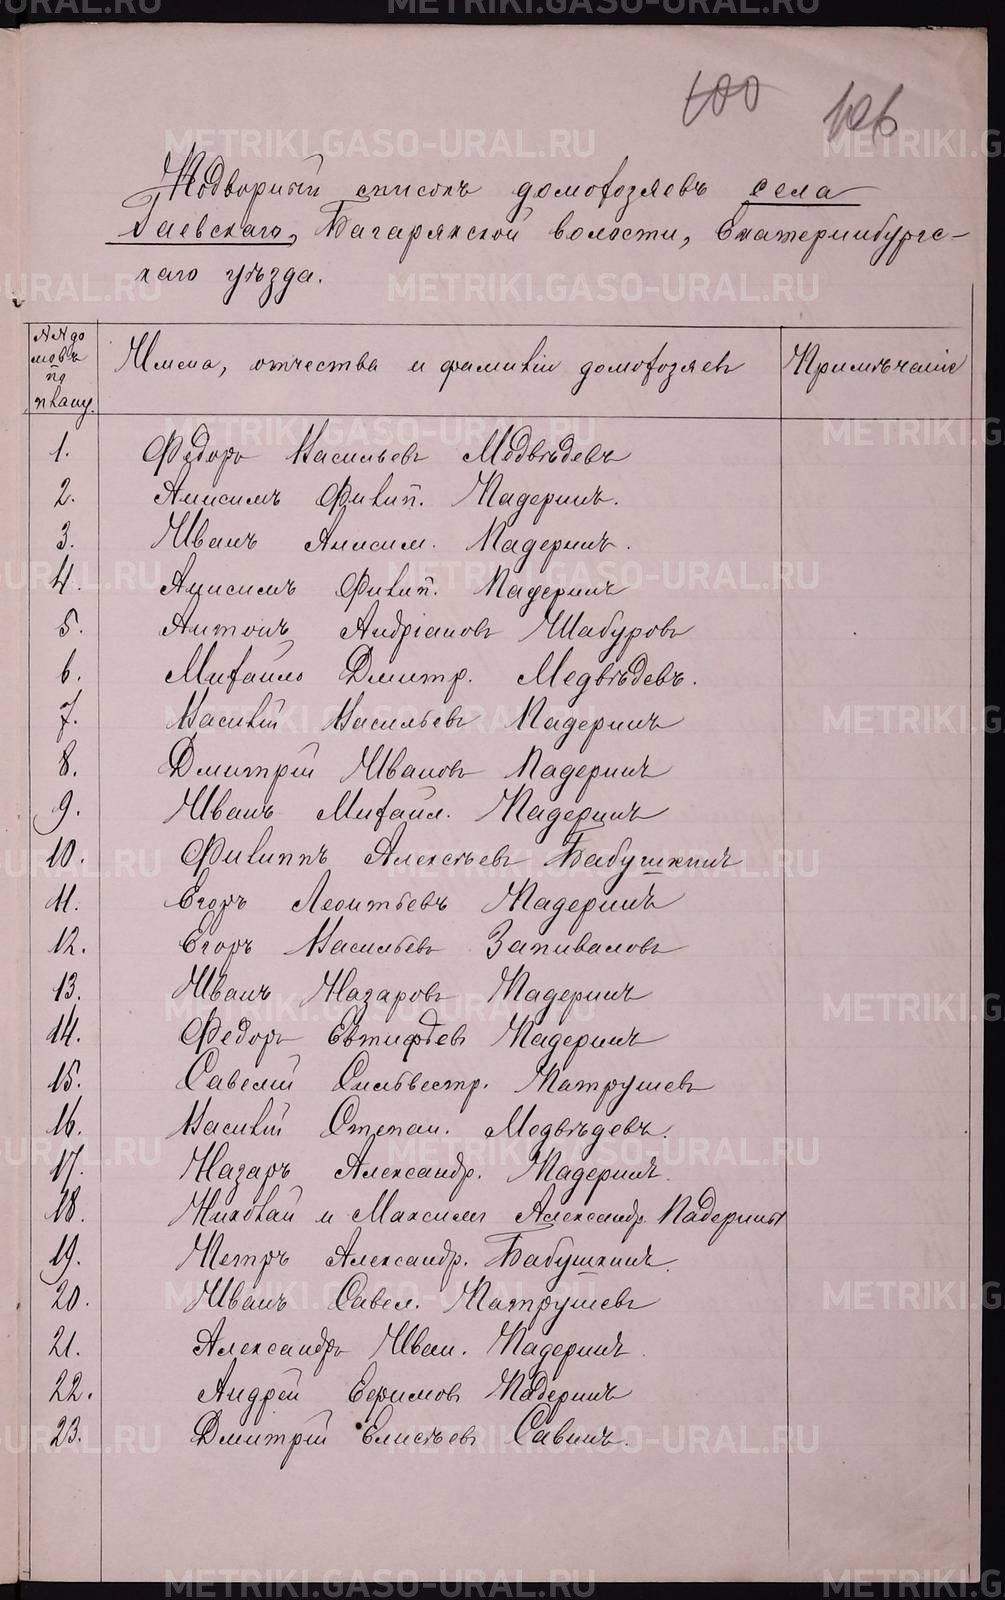 100 106
Подворный списокъ домохозяевъ села
Гаевскаго, Багарякской волости, Екатеринбургс-
каго уѣзда.
№№ до
мовъ
по
плану.
Имена, отчества и фамиліи домохозяевъ
Примѣчаніе
1. Федоръ Васильевъ Медвѣдевъ
2. Анисимъ Филип. Падеринъ.
3. Иванъ Анисим. Падеринъ.
4. Анисимъ Филип. Падеринъ
5. Антонъ Андріановъ Шабуровъ
6. Михайло Дмитр. Медвѣдевъ.
7. Василій Васильевъ Падеринъ
8. Дмитрій Ивановъ Падеринъ
9. Иванъ Михайл. Падеринъ
10. Филиппъ Алексѣевъ Бабушкинъ
11. Егоръ Леонтьевъ Падеринъ
12. Егоръ Васильевъ Запиваловъ
13. Иванъ Назаровъ Падеринъ
14. Федоръ Евтифѣевъ Падеринъ
15. Савелій Сильвестр. Патрушевъ
16. Василій Степан. Медвѣдевъ.
17. Назаръ Александр. Падеринъ.
18. Николай и Максимъ Александр. Падерины
19. Петръ Александр. Бабушкинъ.
20. Иванъ Савел. Патрушевъ
21. Александръ Иван. Падеринъ.
22. Андрей Ефимовъ Падеринъ
23. Дмитрій Елисѣевъ Савинъ.
METRIKI.GASO-URAL.RU